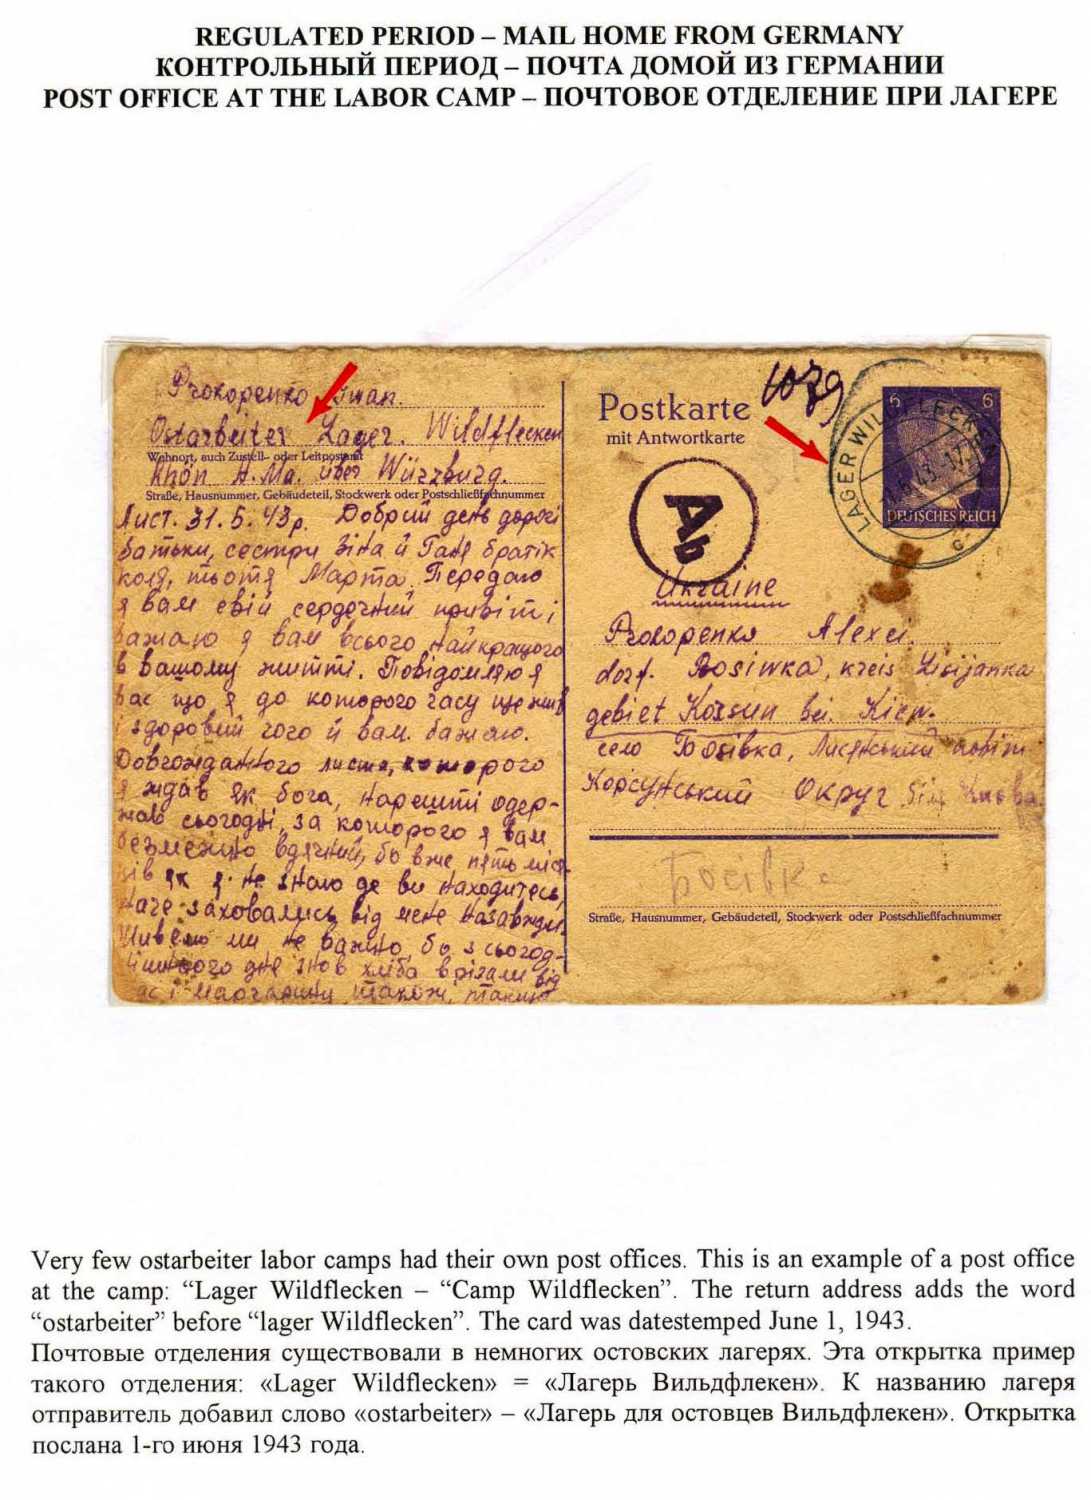 REGULATED PERIOD – MAIL HOME FROM GERMANY
КОНТРОЛЬНЫЙ ПЕРИОД – ПОЧТА ДОМОЙ ИЗ ГЕРМАНИИ
POST OFFICE AT THE LABOR CAMP – ПОЧТОВОЕ ОТДЕЛЕНИЕ ПРИ ЛАГЕРЕ
Prokopenko Iwan
Ostarbeiter Lager. Wildflecken
Wohnort, auch Zustell- oder Leitpostamt
Rhön A.Ma. über Würzburg.
Straße, Hausnummer, Gebäudeteil, Stockwerk oder Postschließfachnummer
Лист. 31.5.43р. Добрий день дорогі
батьки, сестри Зіна й Галя братік
коля, тьотя Марта. Передаю
я вам свій сердечний привіт і
бажаю я вам всього найкращого
в вашому житті. Повідомляю я
вас що я до которого часу ще жив
і здоровий чого й вам бажаю.
Довгожданного листа, которого
я ждав як бога, нарешті одер-
жав сьогодні, за которого я вам
безмежно вдячний, бо вже пять міся-
ців як я не знаю де ви находитесь,
наче заховались від мене назавжди.
Живемо ми не важно, бо з сьогод-
нішнього дня знов хліба врізали від
нас і маргарину також,
Postkarte
mit Antwortkarte
6 6
DEUTSCHES REICH
LAGER WILDFLECKEN
-1.6.43.-17
G
Ab
Ukraine
Prokopenko Alexei.
dorf. Bosiwka, kreis Lisijanka
gebiet Korsun bei. Kiew.
село Босівка, Лисянський повіт
Корсунський Округ біля Києва
Босівка
Straße, Hausnummer, Gebäudeteil, Stockwerk oder Postschließfachnummer
Very few ostarbeiter labor camps had their own post offices. This is an example of a post office
at the camp: “Lager Wildflecken – “Camp Wildflecken”. The return address adds the word
“ostarbeiter” before “lager Wildflecken”. The card was datestemped June 1, 1943.
Почтовые отделения существовали в немногих остовских лагерях. Эта открытка пример
такого отделения: «Lager Wildflecken» = «Лагерь Вильдфлекен». К названию лагеря
отправитель добавил слово «ostarbeiter» – «Лагерь для остовцев Вильдфлекен». Открытка
послана 1-го июня 1943 года.